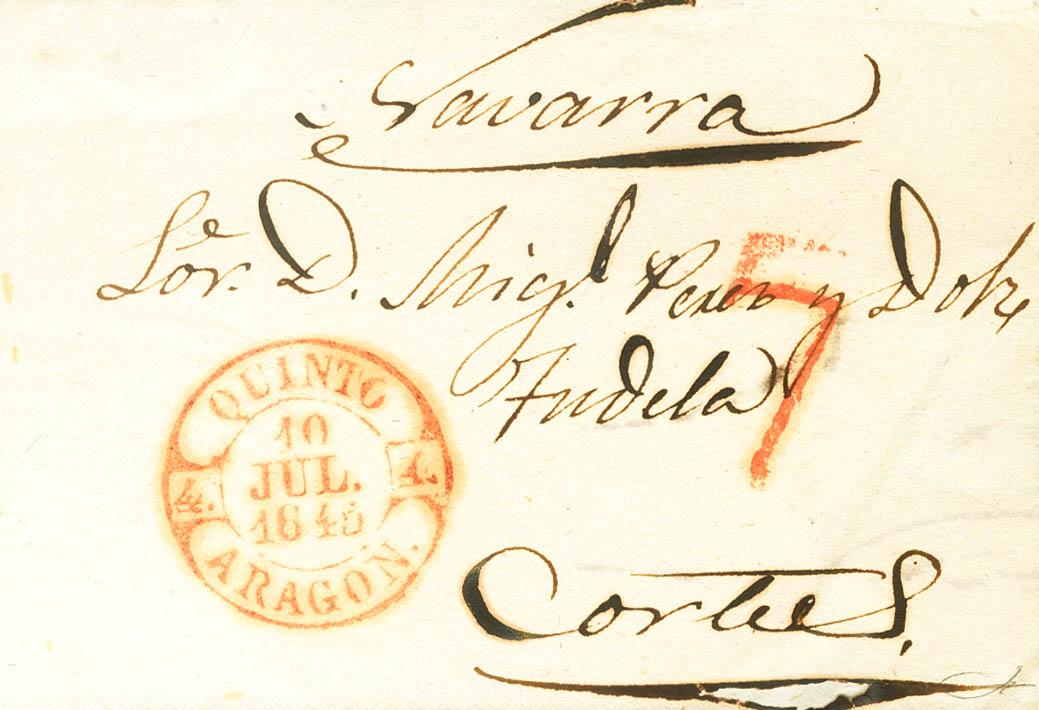 Navarra
Sor. D. Migl. Perez y Dolz
Tudela
7
QUINTO
10
JUL.
184
4. 4.
ARAGON.
Cortes.